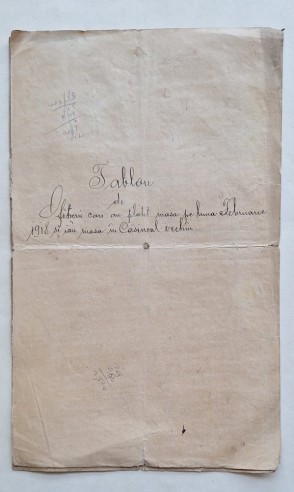 Tablou
de
Ofițerii cari au plătit masa pe luna Februarie
1918 și iau masa in Casinoul vechiu